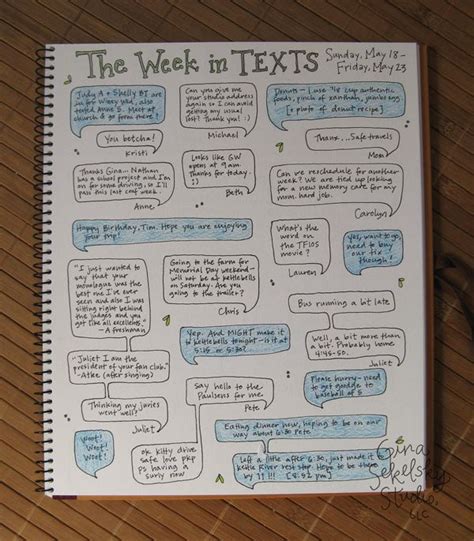 The Week in TEXTS
Sunday, May 18-
Friday, May 23
Judy A + Shelly BT are
in for Wiley vid, also
texted Anne S. Meet up
church & go from there?
You betcha!
Kristi
Can you give me
your studio address
again so I can avoid
getting my usual
lost? Thank you! :)
Michael
Donuts - I use 1/8 cup authentic
foods, pinch of xanthan, jumbo egg
[+ photo of donut recipe]
Thanx...Safe travels
Mom
Thanks Gina... Nathan
has a school project and I'm
on for some driving, so I'll
pass this last conf week.
Anne
Looks like GW
opens at 9am
Thanks for today.
:)
Beth
Can we reschedule for another
week? We are tied up looking
for a new memory care for my
mom. Hard job.
Carolyn
Happy Birthday, Tim. Hope you are enjoying
your trip!
What's the
word on
the TFIOS
movie?
Lauren
Yes, want to go,
need to buy
our tix
though!
"I just wanted to
say that your
monologue was the
best one I've ever
seen and also I was
sitting right behind
the judges and you
got like all excellents."
- A freshman
"Juliet I am the
president of your fan club."
-Atlee (after singing)
Thinking my juries
went well?
Juliet
Woot!
Woot!
Woot!
Going to the farm for
Memorial Day weekend-
will not be at kettlebells
on Saturday. Are you
going to the trailer?
Chris
Yep. And MIGHT make it
to kettlebells tonight-is it at
5:15 or 5:30?
Bus running a bit late
Well, a bit more than
a bit. Probably home
4:45-50.
Juliet
Please hurry- need to
get goddie to
baseball at 5
Say hello to the
Paulsens for me.
Pete
Eating dinner now, hoping to be on our
way about 6:30 Pete
ok kitty drive
safe love pkp
ps having a
surly now
Left a little after 6:30, just made it
Kettle River rest stop. Hope to be there
by 11!!! [8:52 pm]
Gina
Sekelsky
Studio,
LLC